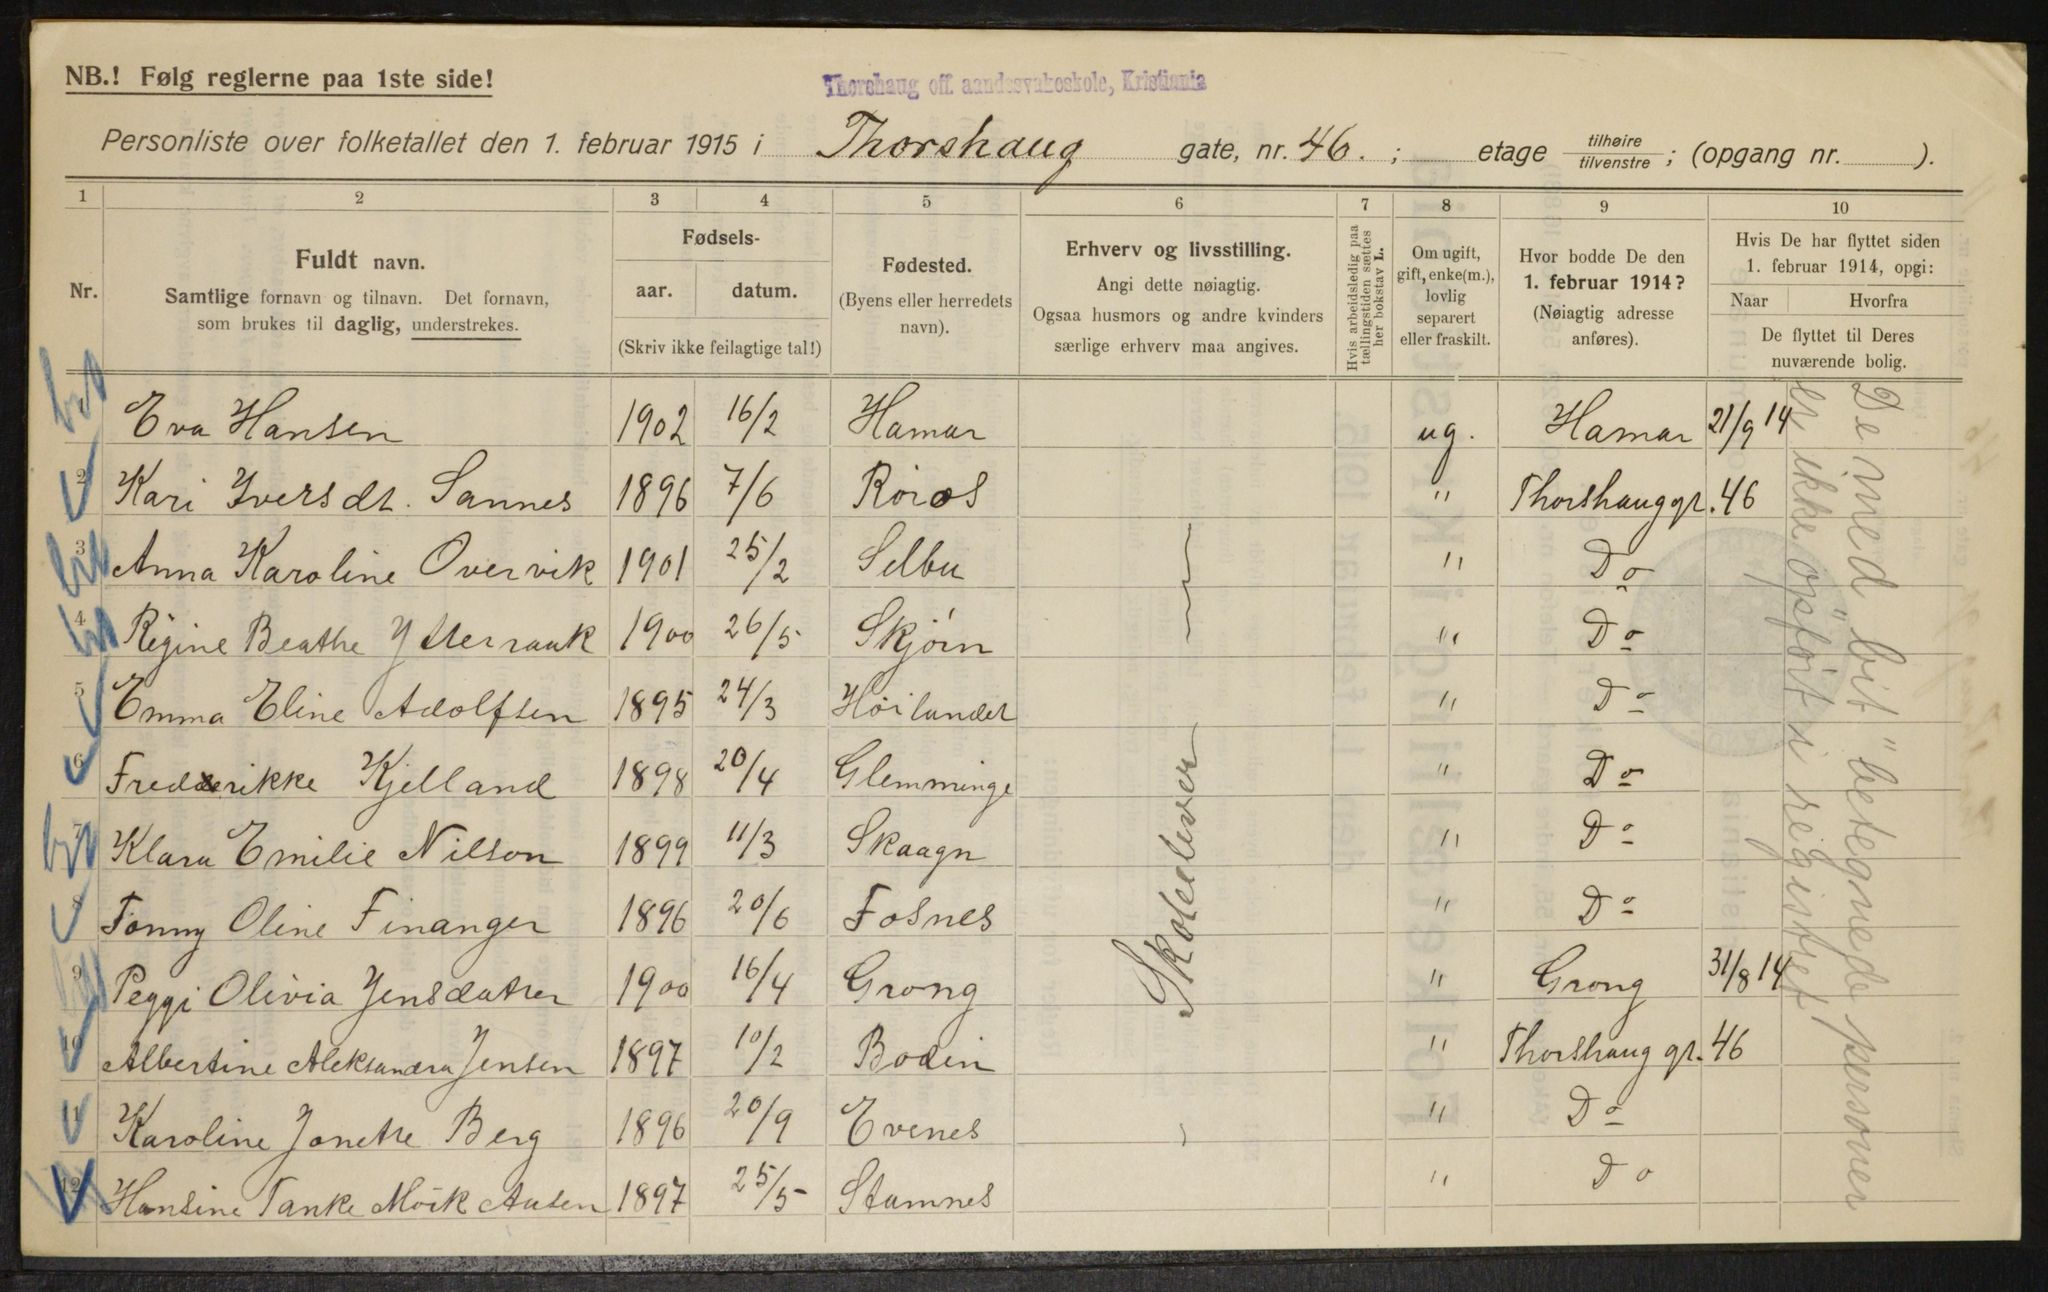 NB.! Følg reglerne paa 1ste side!
Thorshaug off. aandssvakeskole, Kristiania
Personliste over folketallet den 1. februar 1915 i Thorshaug gate, nr. 46. ; etage tilhøire / tilvenstre ; (opgang nr. ).
1 2 3 4 5 6 7 8 9 10
Nr.
Fuldt navn.
Samtlige fornavn og tilnavn. Det fornavn,
som brukes til daglig, understrekes.
Fødsels-
aar. datum.
(Skriv ikke feilagtige tal!)
Fødested.
(Byens eller herredets
navn).
Erhverv og livsstilling.
Angi dette nøiagtig.
Ogsaa husmors og andre kvinders
særlige erhverv maa angives.
Hvis arbeidsledig paa
tællingstiden sættes
her bokstav L.
Om ugift,
gift, enke(m.),
lovlig
separert
eller fraskilt.
Hvor bodde De den
1. februar 1914?
(Nøiagtig adresse
anføres).
Hvis De har flyttet siden
1. februar 1914, opgi:
Naar Hvorfra
De flyttet til Deres
nuværende bolig.
1 Eva Hansen 1902 16/2 Hamar ug. Hamar 21/9 14
2 Kari Iversdt. Sannes 1896 7/6 Røros " Thorshauggt. 46
3 Anna Karoline Overvik 1901 25/2 Selbu " Do
4 Regine Beathe Ytterraak 1900 26/5 Skjørn " Do
5 Emma Eline Adolfsen 1895 24/3 Høilandet " Do
6 Frederikke Kjelland 1898 20/4 Glemminge " Do
7 Klara Emilie Nilson 1899 11/3 Skaagn " Do
8 Fanny Oline Finanger 1896 20/6 Fosnes " Do
9 Peggi Olivia Jensdatter 1900 16/4 Grong " Grong 31/8 14
10 Albertine Aleksandra Jensen 1897 10/2 Bodin " Thorshaug gt. 46
11 Karoline Jonette Berg 1896 20/9 Evenes " Do
12 Hansine Tanke Mörk Aasen 1897 25/5 Stamnes " Do
Skoleelever
De med "bit" betegnede personer
er ikke opført i registret